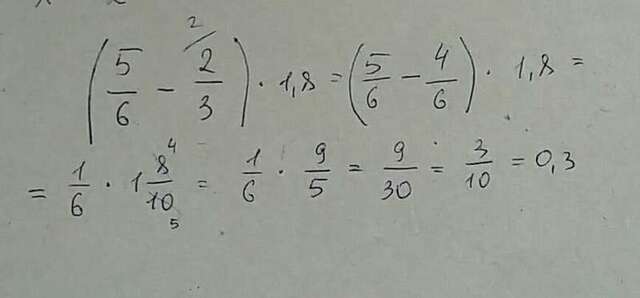 (5/6 - 2/3 ^2/) · 1,8 = (5/6 - 4/6) · 1,8 =
= 1/6 · 1 8/10 ^4 _5 = 1/6 · 9/5 = 9/30 = 3/10 = 0,3